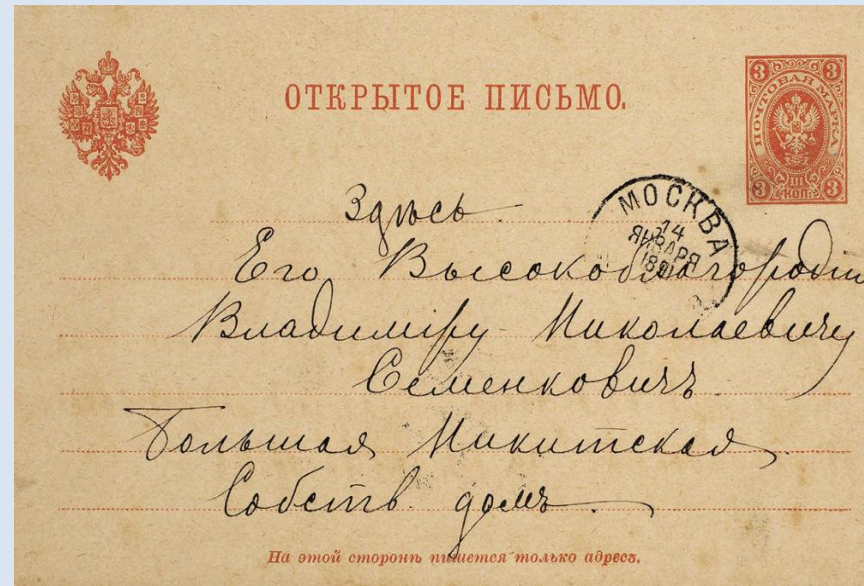 ОТКРЫТОЕ ПИСЬМО.
3 3
ПОЧТОВАЯ МАРКА
III
КОП.
3 3
МОСКВА
14
ЯНВАРЯ
1891
Здѣсь.
Его Высокоблагородiю
Владимиру Николаевичу
Семенковичъ.
Большая Никитская
Собств. домъ.
На этой сторонѣ пишется только адресъ.